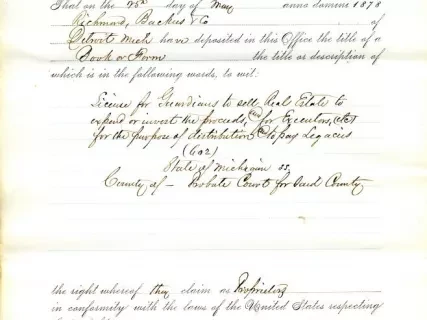 That on the 25th day of May anno domini 1878
Richmond, Backus & Co of
Detroit Mich have deposited in this Office the title of a
Book or Form the title or description of
which is in the following words, to wit:
License for Guardians to sell Real Estate to
expend or invest the proceeds, for Executors, &c
for the purpose of distribution to pay Legacies
(602)
State of Michigan ss.
County of — Probate Court for Said County
the right whereof they claim as Proprietors
in conformity with the laws of the United States respecting